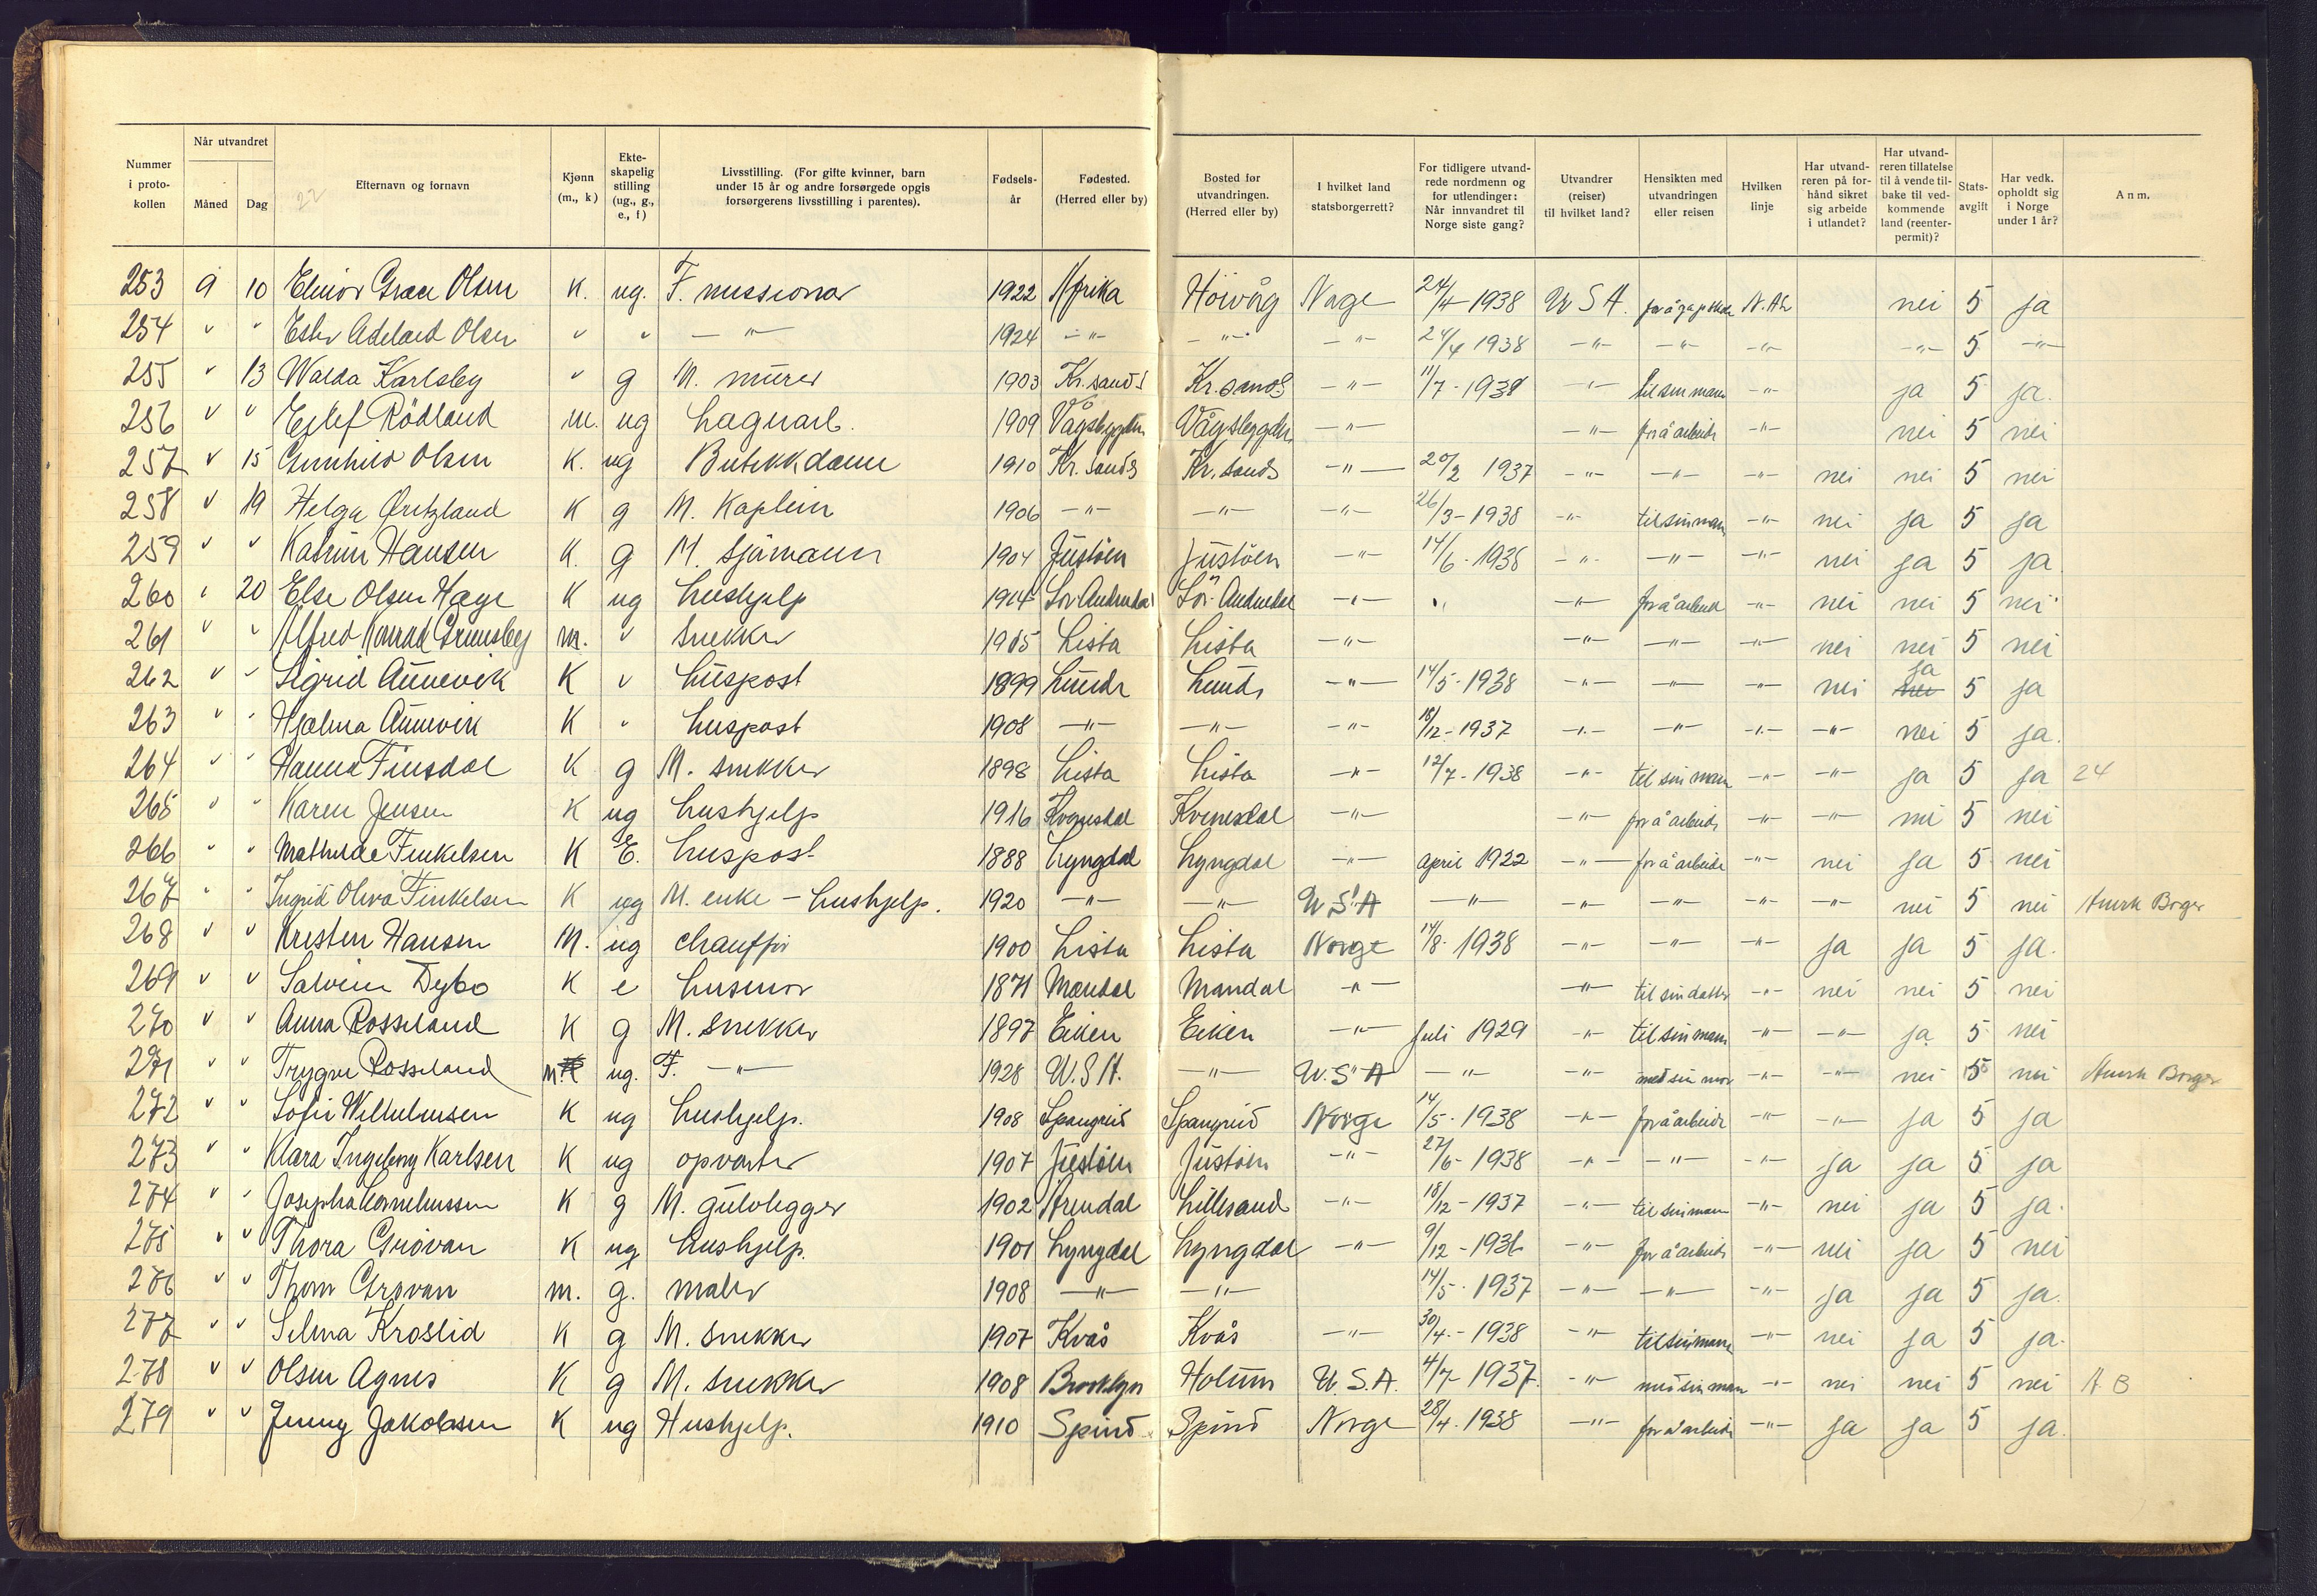 Nummer i proto- kollen | Når utvandret Måned | Dag | Efternavn og fornavn | Kjønn (m., k) | Ekte- skapelig stilling (ug., g., e., f) | Livsstilling. (For gifte kvinner, barn under 15 år og andre forsørgede opgis forsørgerens livsstilling i parentes). | Fødsels- år | Fødested. (Herred eller by) | Bosted før utvandringen. (Herred eller by) | I hvilket land statsborgerrett? | For tidligere utvand- rede nordmenn og for utlendinger: Når innvandret til Norge siste gang? | Utvandrer (reiser) til hvilket land? | Hensikten med utvandringen eller reisen | Hvilken linje | Har utvand- reren på for- hånd sikret sig arbeide i utlandet? | Har utvand- reren tillatelse til å vende til- bake til ved- kommende land (reenter- permit)? | Stats- avgift | Har vedk. opholdt sig i Norge under 1 år? | Anm.
22
253 9 10 Elinor Grace Olsen K. ug. F. missionær 1922 Afrika Höivåg Norge 24/4-1938 U S A. N.A.L nei 5 ja
254 " " Adelaid Olsen " " -"- 1924 -"- -"- -"- 24/4 1938 -"- -"- -"- -"- 5 -"-
255 " 13 Walda Karlsby " g M. murer 1903 Kr.sands Kr.sands -"- 11/7-1938 -"- til sin mann -"- ja 5 ja.
256 " " Eilef Rödland m. ug Lagerarb. 1909 Vågsbygden Vågsbygden -"- -"- for å arbeide -"- nei 5 nei
257 " 15 Gunhild Olsen K. ug Butikkdame 1910 Kr.sands Kr.sands -"- 20/2 1937 -"- -"- -"- nei nei 5 nei
258 " 19 Helga K g M. Kaptein 1906 -"- -"- -"- 26/3-1938 -"- til sin man -"- nei ja 5 ja
259 " " Katrine Hansen K. g M. sjömann 1904 Justöen Justöen -"- 14/6-1938 -"- -"- -"- nei ja 5 ja.
260 " 20 Else Olsen Hæge K ug hushjelp 1914 Sör-Audnedal Sör-Audnedal -"- " -"- for å arbeide -"- nei nei 5 nei
261 " " Alfred Konrad Grimsby m. " snekker 1905 Lista Lista -"- -"- -"- -"- nei nei 5 nei
262 " " Sigrid Aunevik K " huspost 1899 Lunde Lunde -"- 14/5-1938 -"- -"- -"- nei nei ja 5 ja
263 " " Hjalma Aunevik K " huspost 1908 -"- -"- -"- 18/12-1937 -"- -"- -"- -"- nei 5 ja.
264 " " Hanna Finsdal K g M. snekker 1898 Lista Lista -"- 12/7-1938 -"- til sin man -"- -"- ja 5 ja 24
265 " " Karen Jensen K ug hushjelp 1916 Kvinesdal Kvinesdal -"- -"- for å arbeide -"- -"- nei 5 nei
266 " " Mathilde Finkelsen K E. huspost 1888 Lyngdal Lyngdal -"- april 1922 -"- for å arbeide -"- nei ja 5 nei
267 " " Ingrid Oliva Finkelsen K ug M. enke - hushjelp. 1920 -"- -"- U S A -"- -"- -"- -"- -"- nei 5 nei Amrk Borger
268 " " Kristen Hansen M. ug chauffør 1900 Lista Lista Norge 14/8-1938 -"- -"- -"- ja ja 5 ja.
269 " " Salvine Dybo K e husmor 1871 Mandal Mandal -"- -"- til sin datter -"- nei nei 5 nei
270 " " Anna Rosseland K g M. snekker 1897 Eiken Eiken -"- Juli 1929 -"- til sin mann -"- -"- ja 5 nei
271 " " Trygve Rosseland m. ug. F. -"- 1928 U.S.A. -"- U.S.A -"- -"- med sin mor -"- -"- nei 5 nei Amrk Borger
272 " " Sofie Wilhelmsen K ug hushjelp. 1908 Spangreid Spangreid Norge 14/5-1938 -"- for å arbeide -"- -"- ja 5 ja
273 " " Klara Ingeborg Karlsen K ug opvarter 1907 Justöen Justöen -"- 27/6-1938 -"- -"- -"- ja ja 5 ja
274 " " Josepha Corneliussen K g M. gulvlegger 1902 Arendal Lillesand -"- 18/12-1937 -"- til sin man -"- nei ja 5 ja.
275 " " Thora Grövan K ug hushjelp. 1901 Lyngdal Lyngdal -"- 9/12-1936 -"- for å arbeide -"- nei ja 5 nei
276 " " Thom Grövan m. g. maler 1908 -"- -"- 14/5-1937 -"- -"- -"- ja ja 5 ja.
277 " " Selma Kroslid K g M. snekker 1907 Kvås Kvås -"- 30/4-1938 -"- til sin mann -"- nei ja 5 ja.
278 " " Olsen Agnes K g M. snekker 1908 Brooklyn Holum U.S.A. 4/7-1937. -"- med sin man -"- nei nei 5 nei A B
279 " " Jenny Jakobsen K ug Hushjelp. 1910 Spind Spind Norge 28/4-1938 -"- for å arbeide -"- ja ja 5 ja.